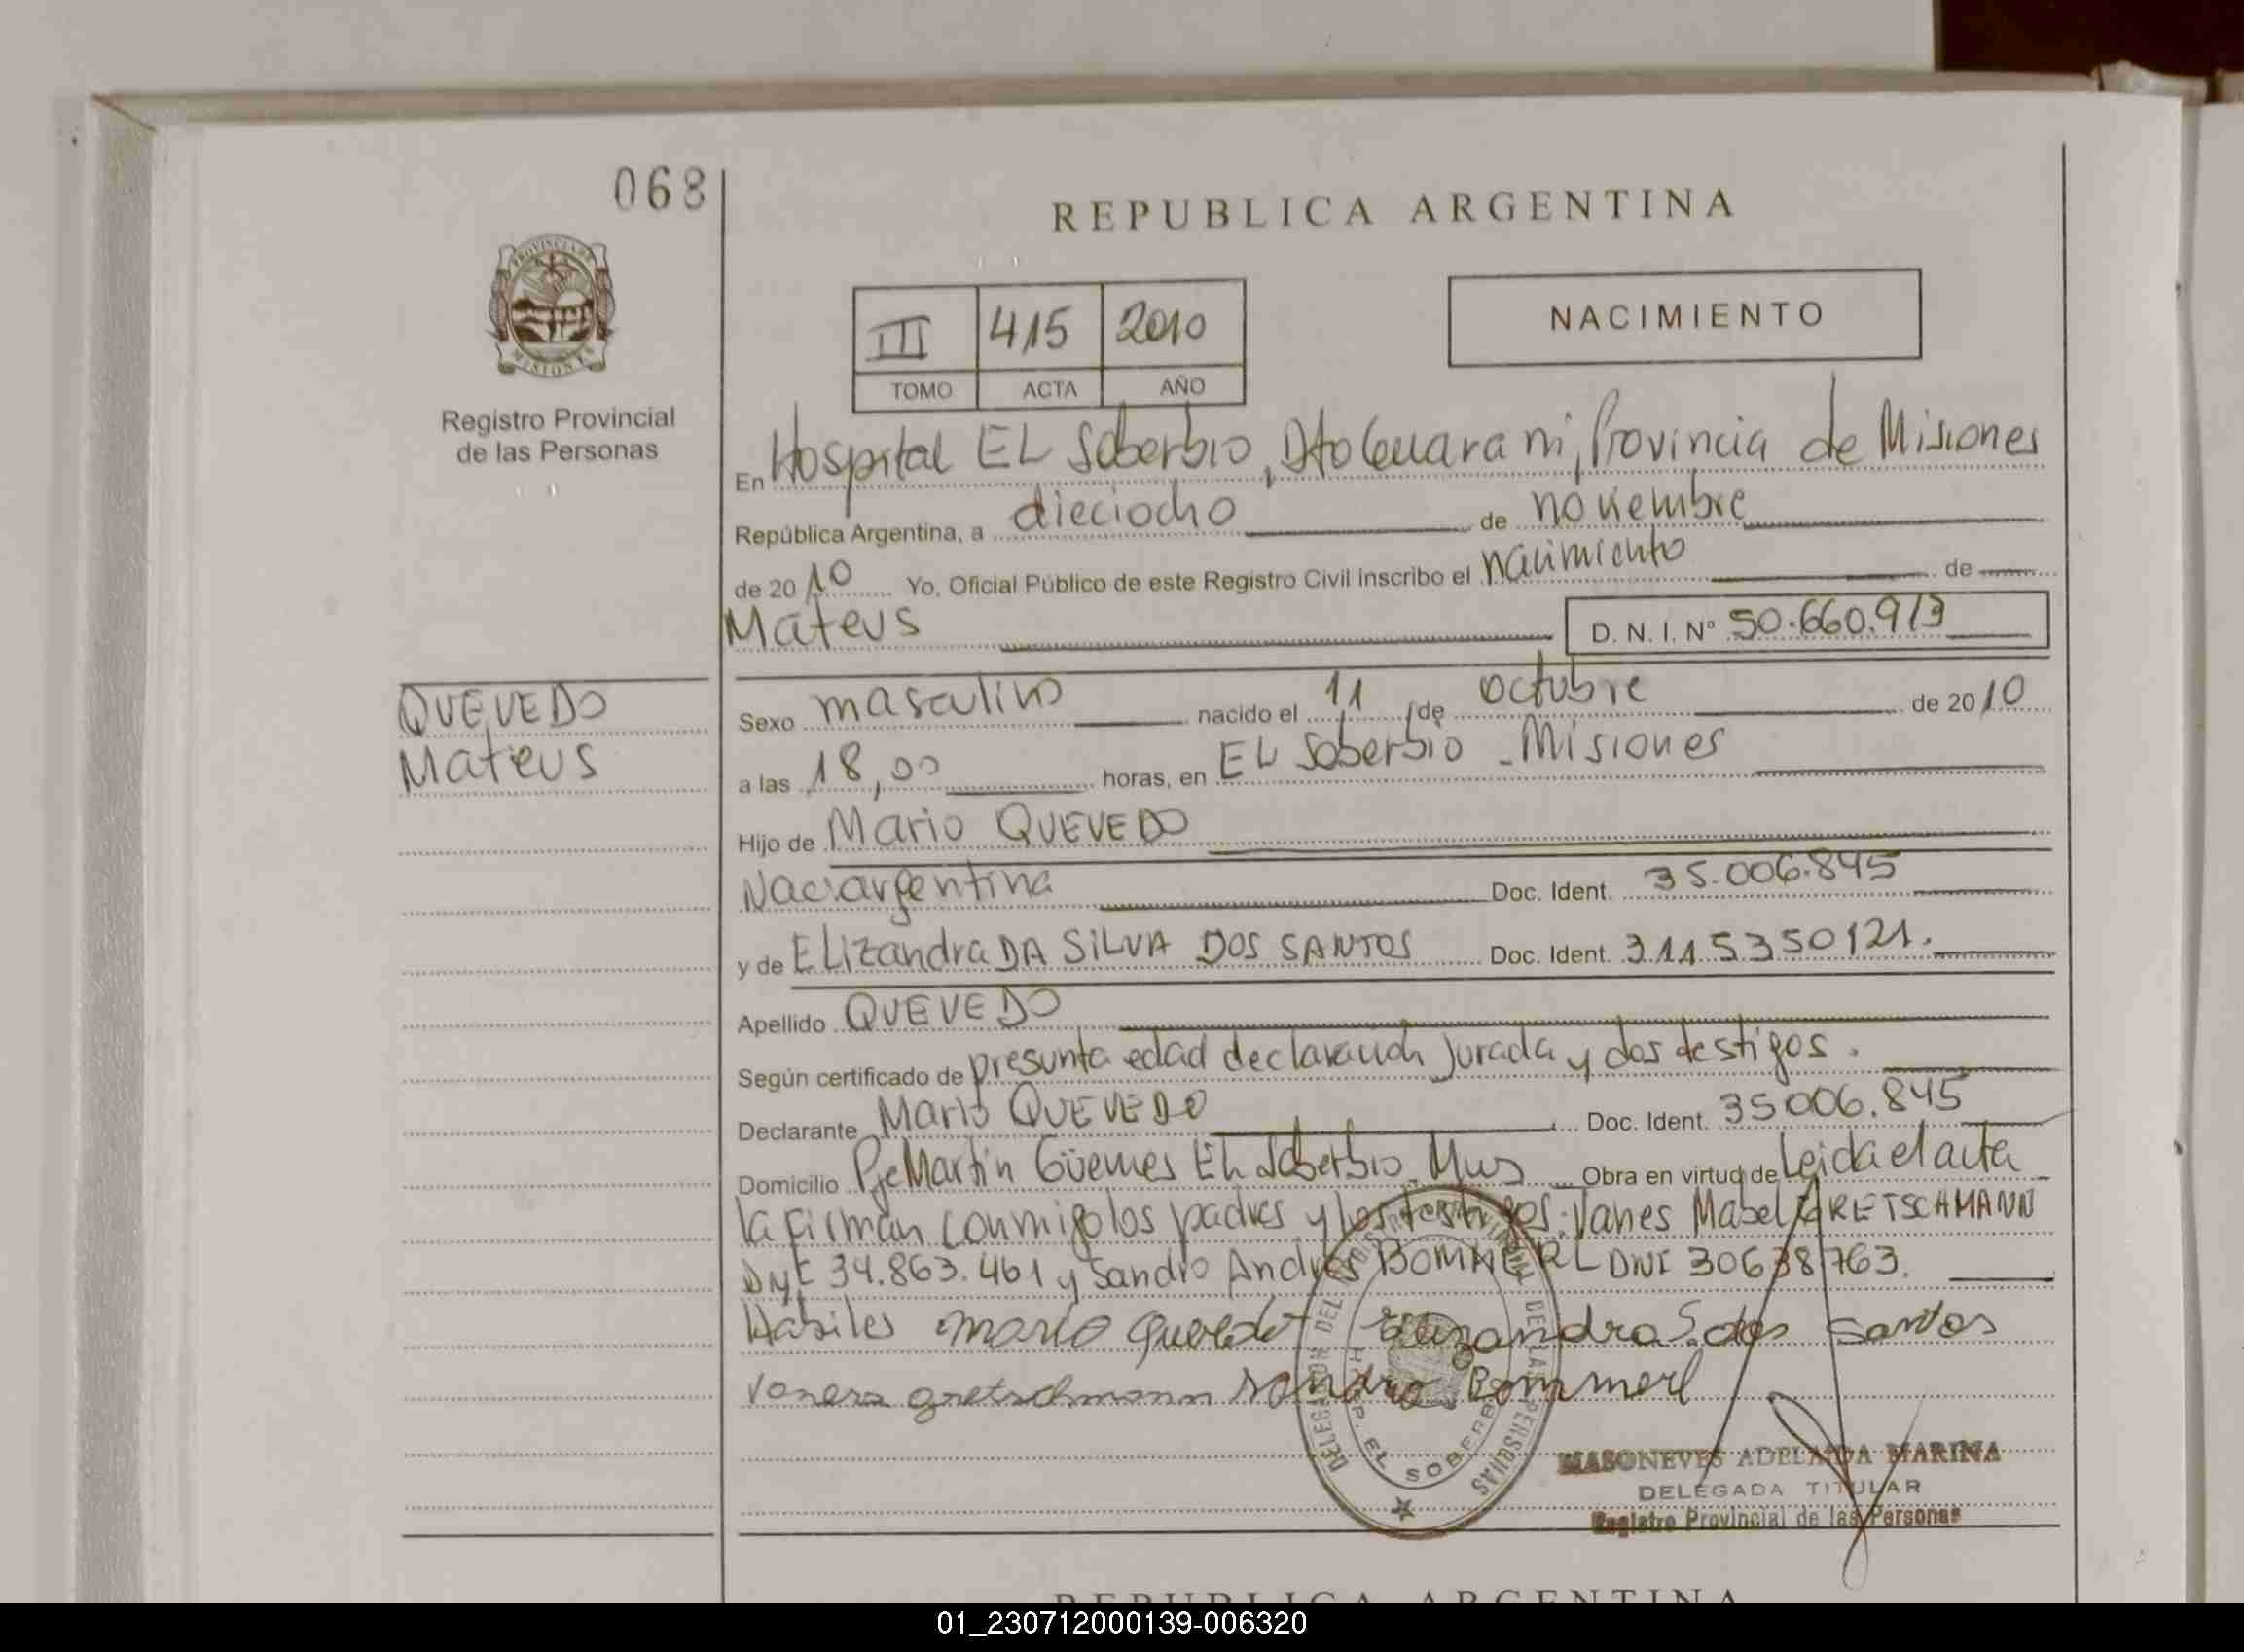 068
REPUBLICA ARGENTINA
PROVINCIA DE MISIONES
Registro Provincial
de las Personas
III 415 2010
TOMO ACTA AÑO
NACIMIENTO
En Hospital EL Soberbio, Dto Guarani, Provincia de Misiones
República Argentina, a dieciocho de noviembre
de 2010 Yo, Oficial Público de este Registro Civil inscribo el nacimiento de
Mateus D. N. I. Nº 50.660.913
QUEVEDO
Mateus
Sexo masculino nacido el 11 de octubre de 2010
a las 18,00 horas, en EL Soberbio - Misiones
Hijo de Mario QUEVEDO
Nac. argentina Doc. Ident. 35.006.845
y de ELizandra DA SiLVA DOS SANTOS Doc. Ident. 3115350121.
Apellido QUEVEDO
Según certificado de presunta edad declaración Jurada y dos testigos.
Declarante Mario QUEVEDO Doc. Ident. 35006.845
Domicilio Pje Martín Güemes EL Soberbio Mns Obra en virtud de Leida el acta
la firman conmigo los padres y los testigos: Vanesa Mabel GRETSCHMANN
DNI 34.863.461 y Sandro Andres BOMMERL DNI 30638763.
Habiles mario quevedo Elizandra S. dos santos
vanesa gretschmann sandro Bommerl
DELEGACION DEL REGISTRO PROVINCIAL DE LAS PERSONAS
HOSP. EL SOBERBIO
MASONEVES ADELAIDA MARINA
DELEGADA TITULAR
Registro Provincial de las Personas
REPUBLICA ARGENTINA
01_230712000139-006320